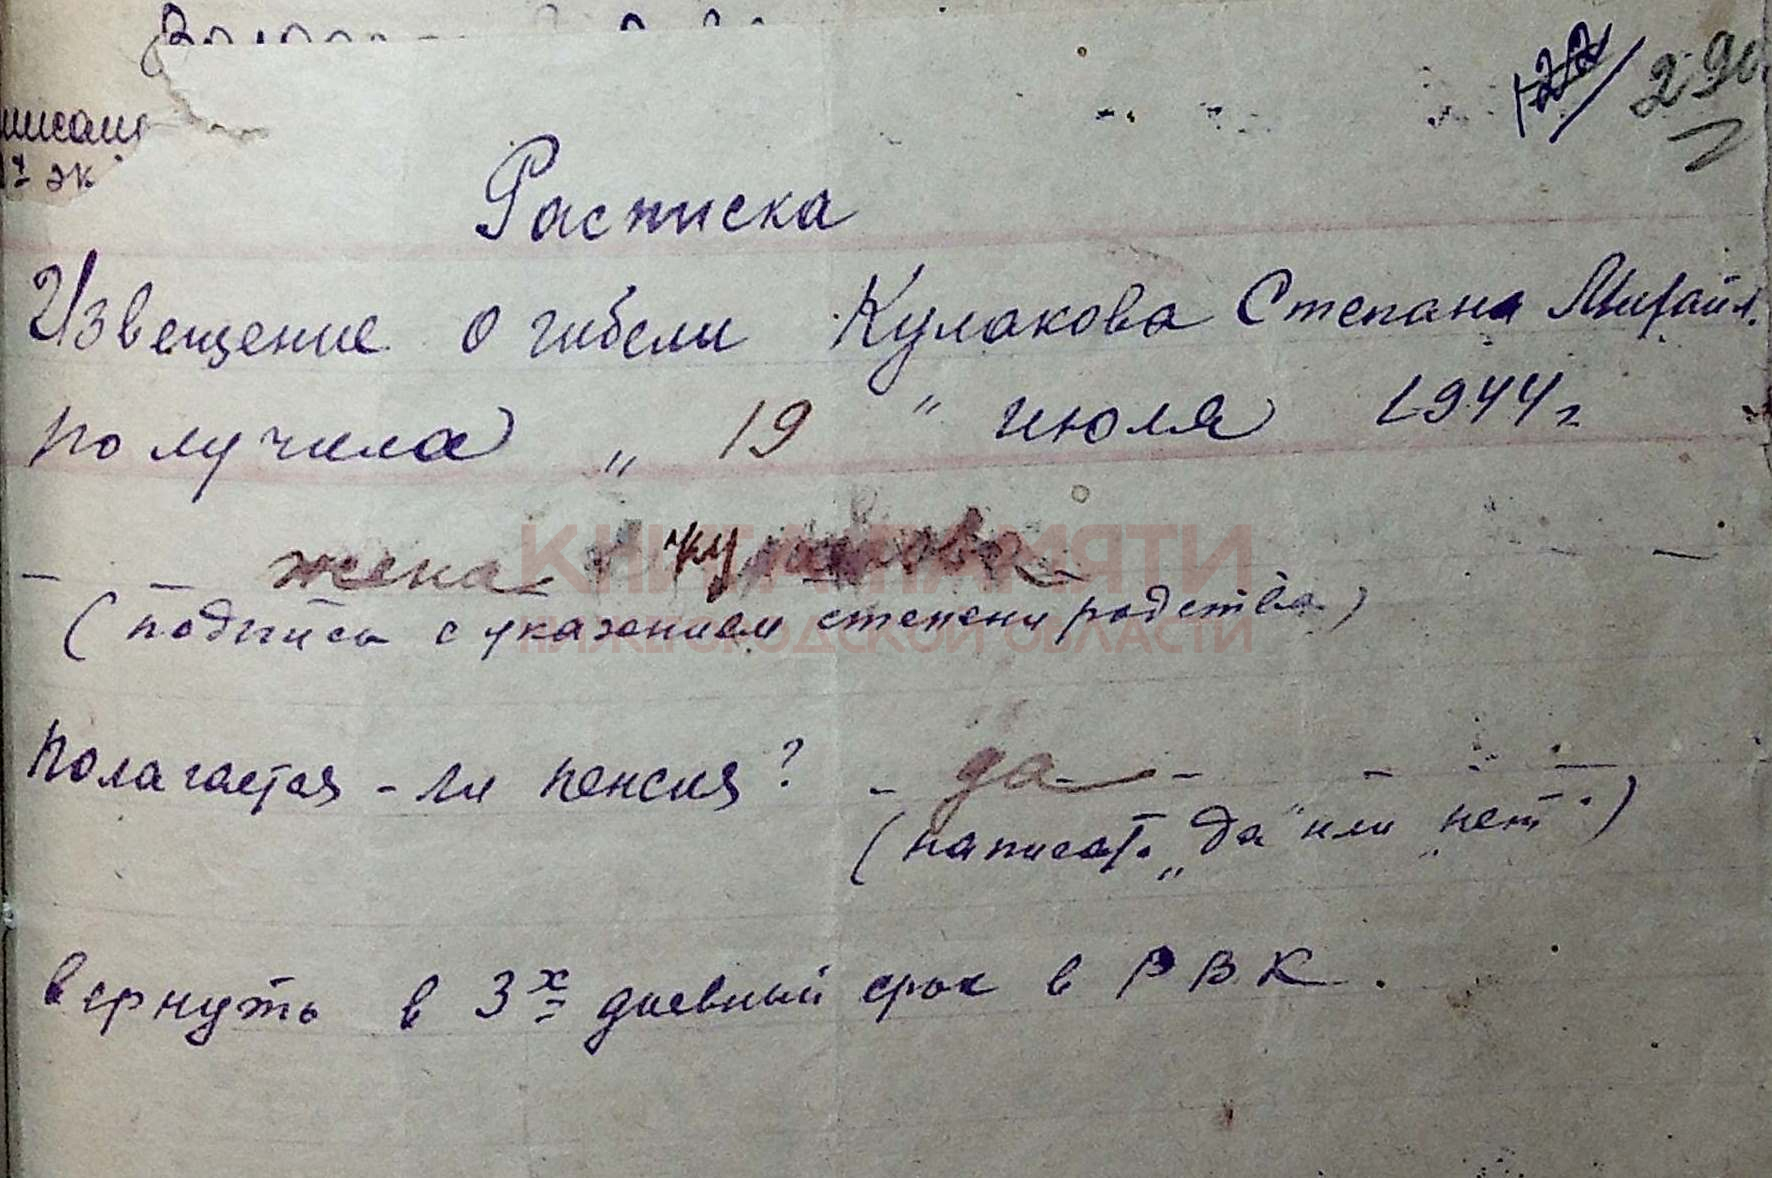 122 290
Расписка
Извещение о гибели Кулакова Степана Михайл.
получила " 19 " июля 1944 г
жена Кулакова
(подпись с указанием степени родства)
КНИГА ПАМЯТИ
НИЖЕГОРОДСКОЙ ОБЛАСТИ
Полагается - ли пенсия? - да
(написать „да" или „нет")
вернуть в 3х дневный срок в РВК.